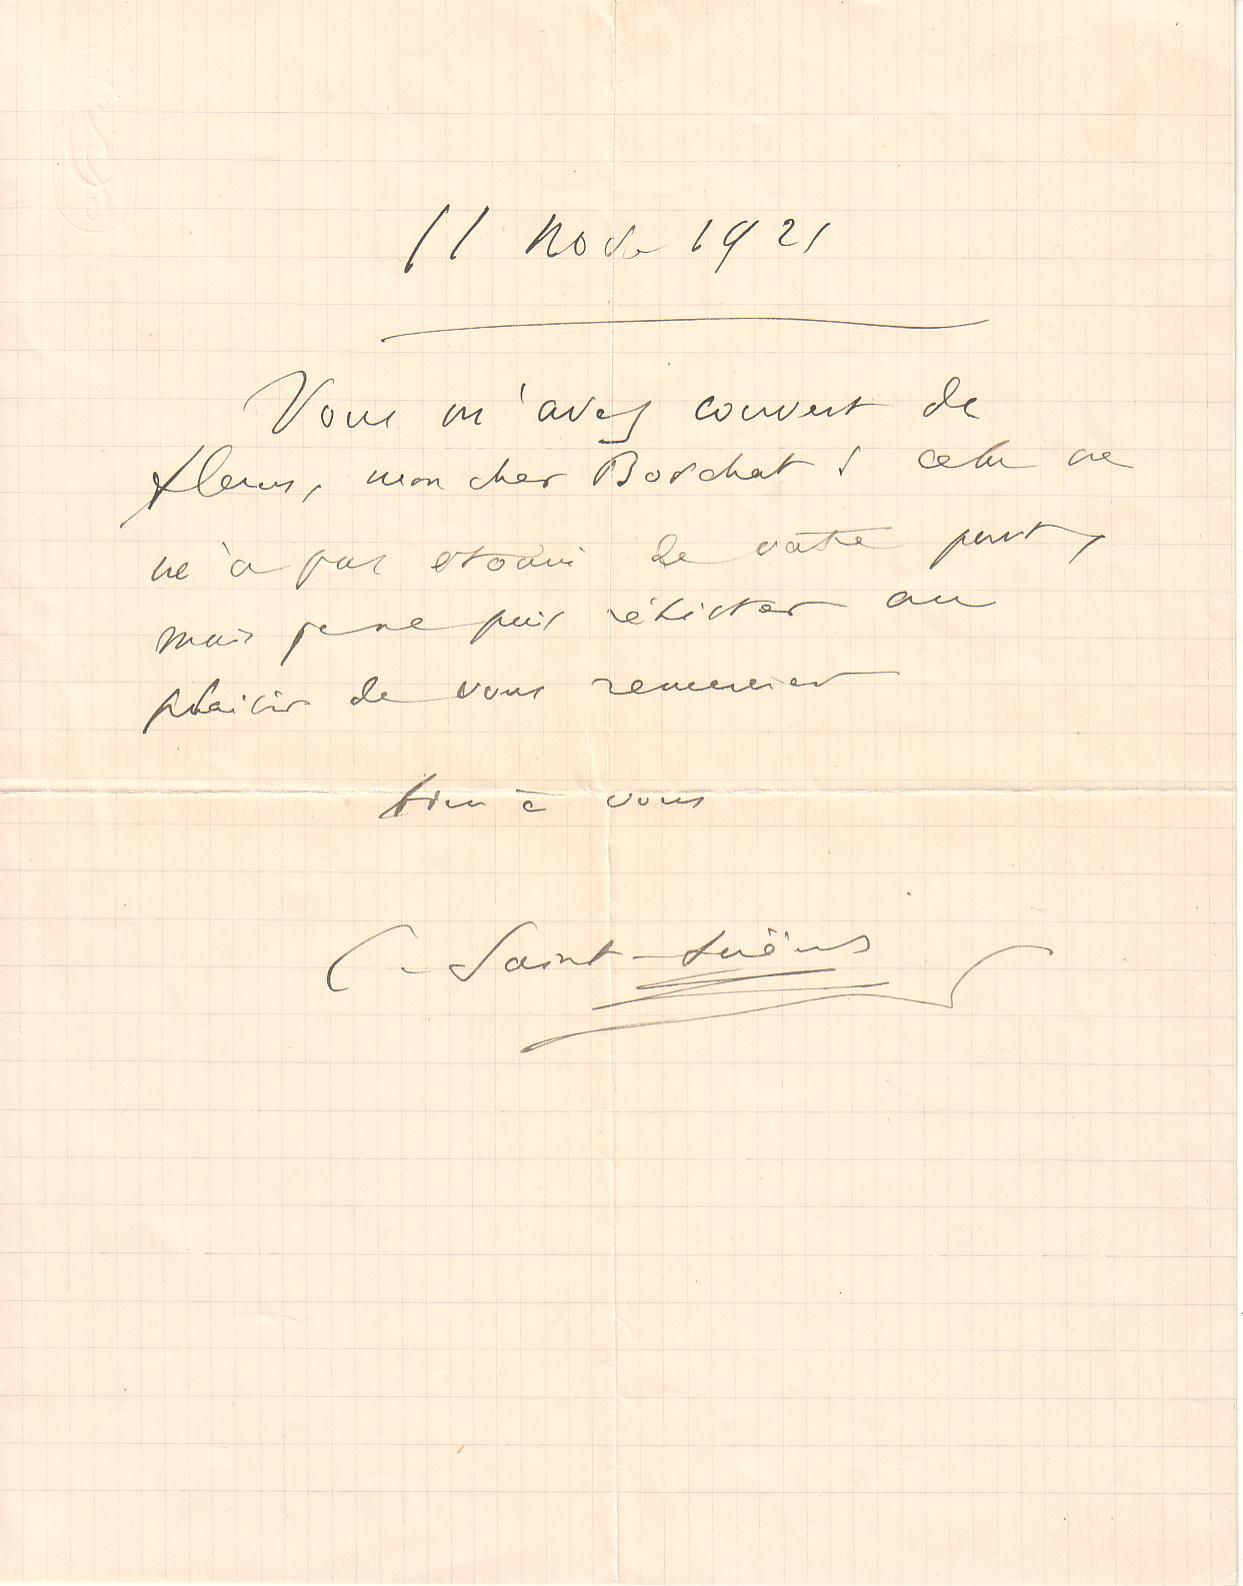 11 Nov 1921
Vous m'avez couvert de
fleurs, mon cher Borchat ! cela ne
m'a pas étonné de votre part,
mais je ne puis résister au
plaisir de vous remercier
bien à vous
C. Saint-Saëns